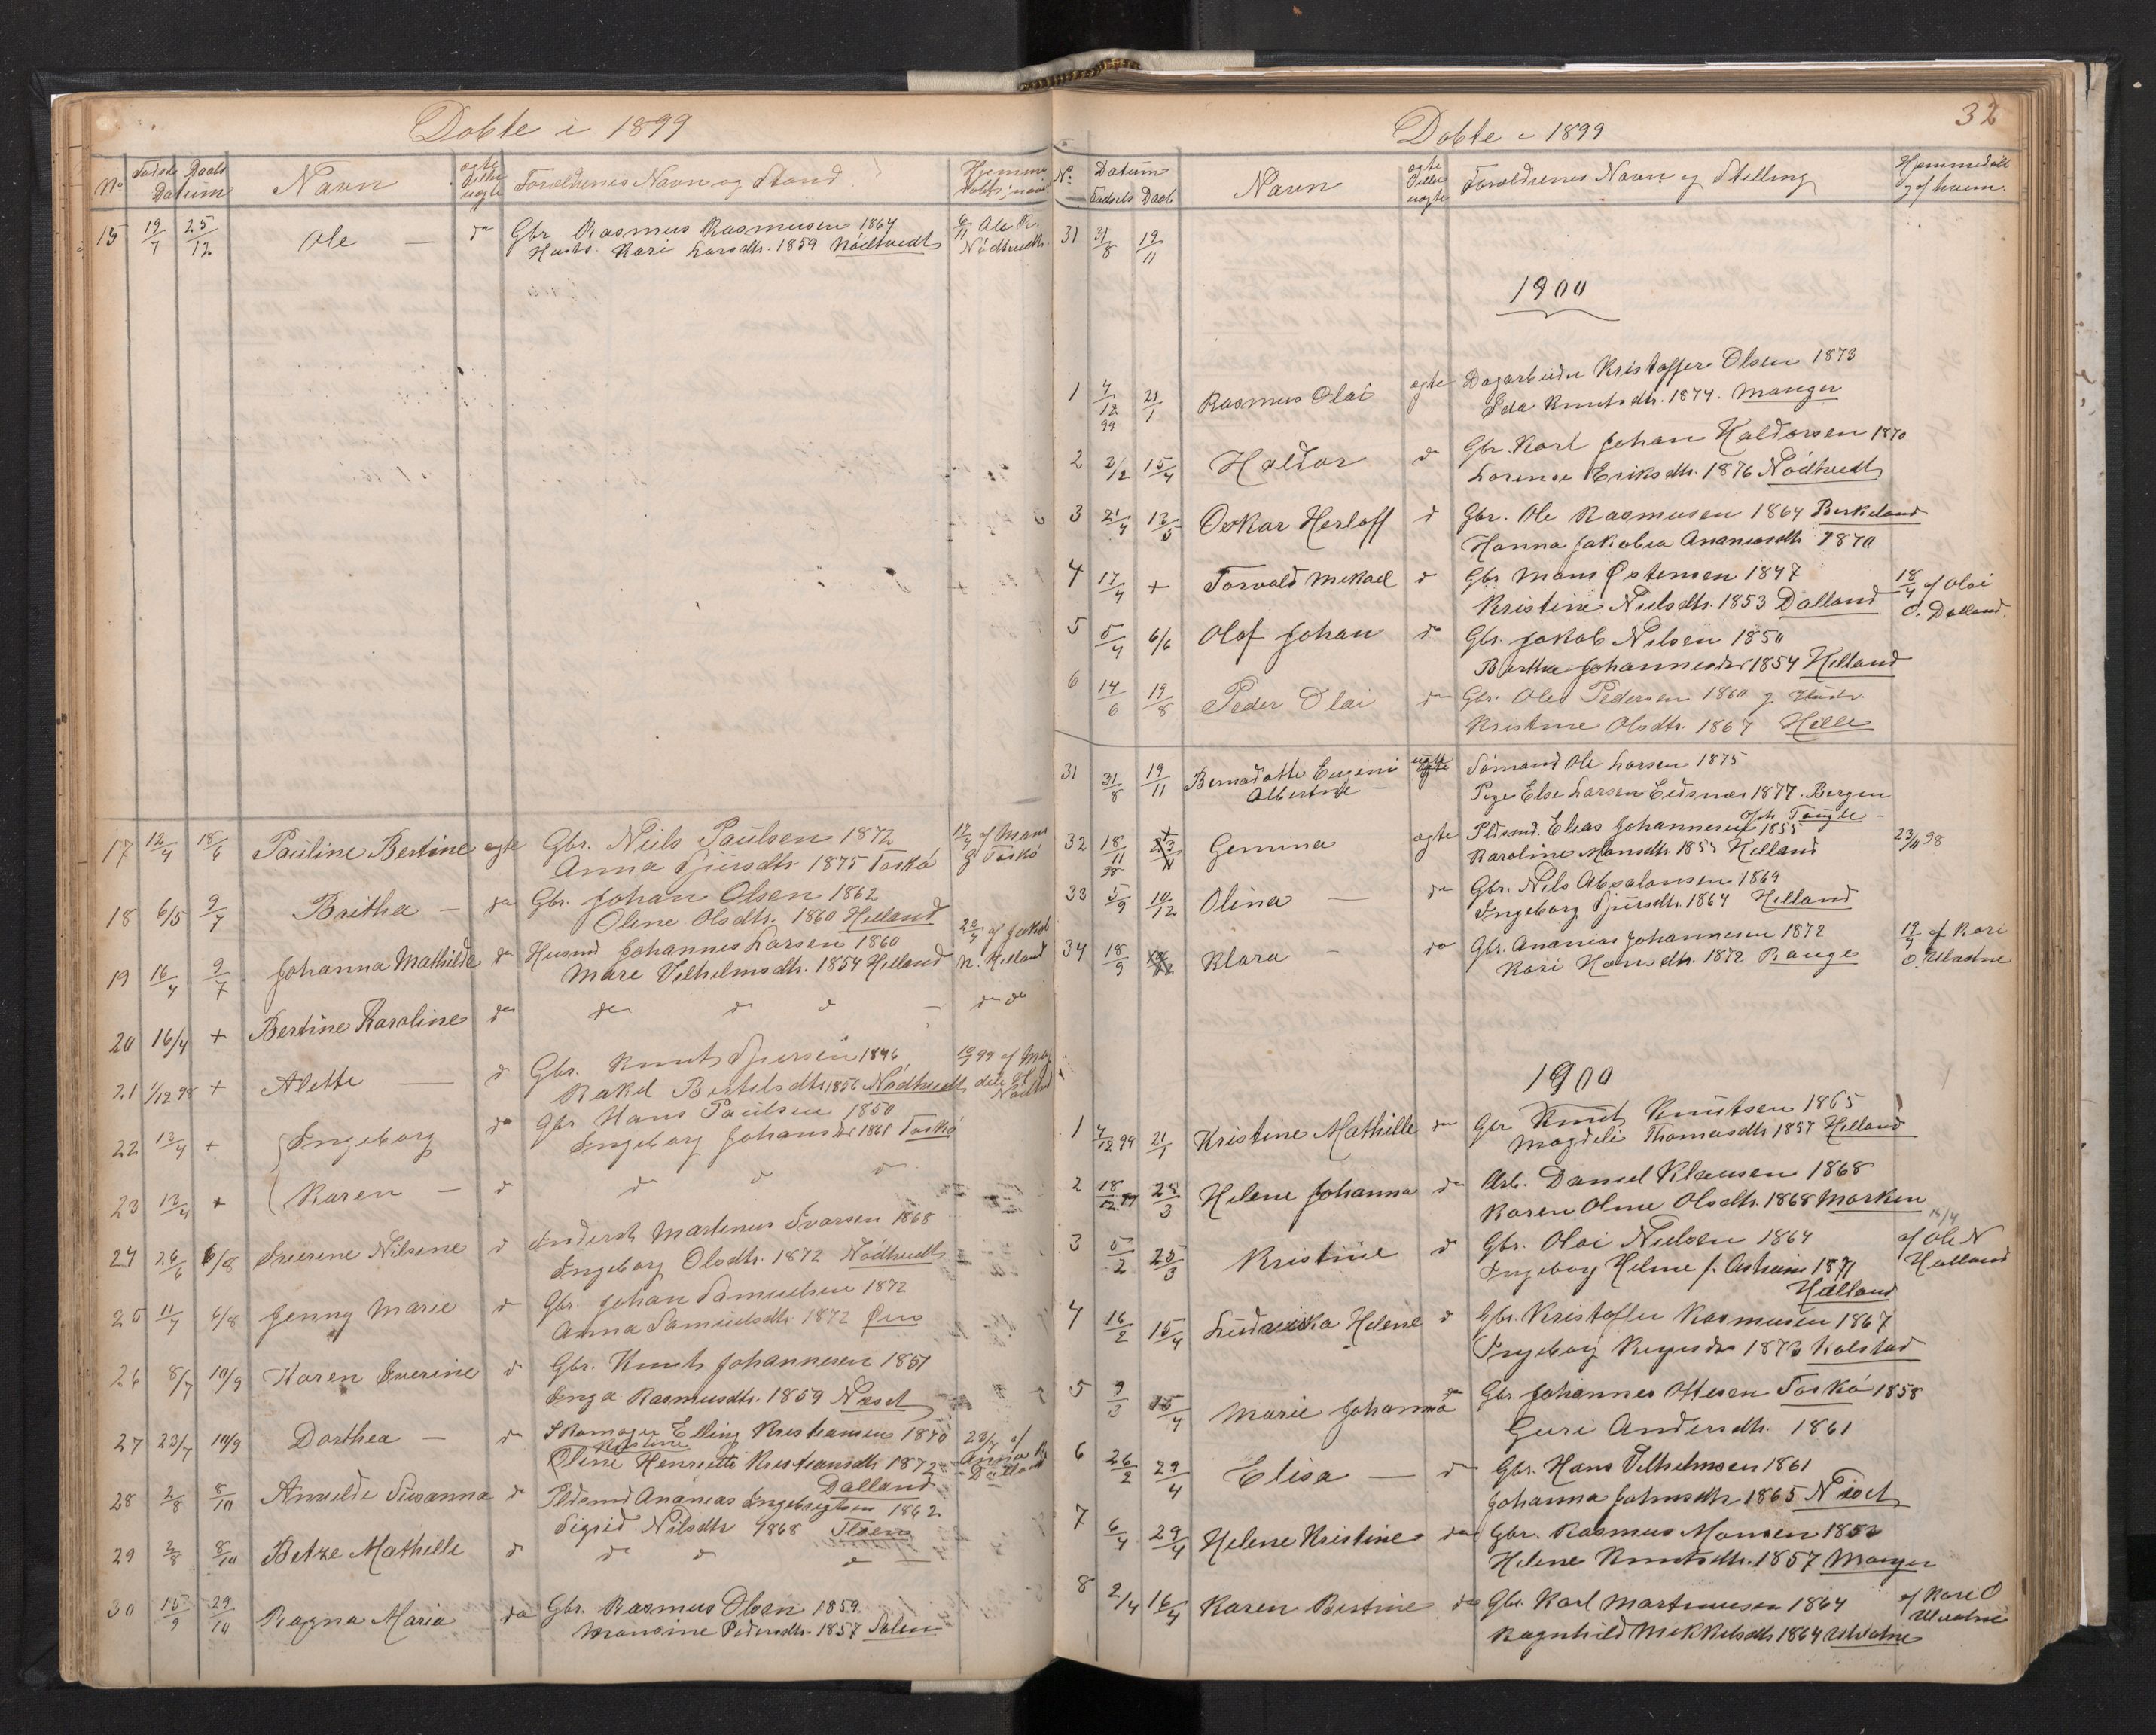 Døbte i 1899
No Fødsels Daabs Datum Navn ægte eller uægte Forældrenes Navn og Stand Hjemmedøbt, naar
15 19/7 25/12 Ole — do Gbr Rasmus Rasmusen 1864 6/11 Ole R.
Hustr. Kari Larsdtr. 1859 Nødtvedt Nødtvedt
17 12/4 18/6 Pauline Bertine ægte Gbr. Niels Paulsen 1872 17/4 af Mans
Anna Sjursdtr 1875 Toskø Toskø
18 6/5 9/7 Britha — do Gbr. Johan Olsen 1862
Oline Olsdtr. 1860 Helland
19 16/4 9/7 Johanna Mathilde do Husmd Johannes Larsen 1860 20/4 af Jakob
Mari Vilhelmsdtr. 1854 Helland N. Helland
20 16/4 + Bertine Karoline do do d d — do do
21 1/12 98 + Alette — d Gbr. Knut Sjursen 1846
Rakel Bertelsdtr 1856 Nødtvedt
22 13/4 + Ingeborg do Gbr Hans Paulsen 1850
Ingeborg Johansdtr 1861 Toskø
23 13/4 + Karen — d d d d
24 26/6 6/8 Iverine Nilsine d Inderst Martinus Ivarsen 1868
Ingeborg Olsdtr. 1872 Nødtvedt
25 11/7 6/8 Jenny Marie d Gbr. Johan Samuelsen 1872
Anna Samuelsdtr. 1872
26 8/7 10/9 Karen Iverine d Gbr. Knut Johannesen 1857
Inga Rasmusdtr. 1859 Næset
27 23/7 10/9 Dorthea — do Skomager Elling Kristiansen 1870 23/7 af
Kristine
Oline Henriette Kristiansdtr 1872 Anna
Dalland Dalland
28 2/8 8/10 Susanna d Pldsmd Ananias Ingebrigtsen 1862
Sigrid Nilsdtr 1868
29 2/8 8/10 Betze Mathilde d d d d
30 15/9 29/10 Ragna Maria do Gbr. Rasmus Olsen 1859
Mansine Pedersdtr. 1857 Solem
32
Døbte i 1899
No. Datum Fødsels Daab Navn ægte eller uægte Forældrenes Navn og Stilling Hjemmedøbt og af hvem.
31 31/8 19/11
1900
1 4/12 99 21/1 Rasmus Olai ægte Dagarbeider Kristoffer Olsen 1873
Ida Knutsdtr. 1874. Manger
2 3/12 15/4 Haldor d Gbr. Karl Johan Haldorsen 1870
Lorense Eriksdtr. 1876 Nødtvedt
3 21/4 13/5 Oskar Herloff d Gbr. Ole Rasmusen 1864 Birkeland
Hanna Jakobea Ananiasdtr 1870
4 17/4 + Torvald Mekael d Gbr Mons Østensen 1847 18/4 af Olai
Kristine Nielsdtr. 1853 Dalland O. Dalland.
5 5/4 6/6 Olaf Johan do Gbr. Jakob Nilsen 1850
Bertha Johannesdtr 1854 Helland
6 14/6 19/8 Peder Olai do Gbr. Ole Pedersen 1860 og Hustr.
Kristine Olsdtr. 1867 Hille
31 31/8 19/11 Bernadotte Eugenie uægte Sømand Ole Larsen 1875
Albertine — Pige Else Larsen Eidsnes 1877. Bergen
oph. Tougle
32 18/11 98 + Gemina ægte Pldsmd. Elias Johannesen 1855 23/11 98
Karoline Monsdtr 1857 Helland
33 5/9 10/12 Olina — do Gbr. Nils Absalonsen 1869
Ingeborg Sjursdtr. 1864 Helland
34 18/9 Klara — do Gbr. Ananias Johannesen 1872 19/9 af Kari
Kari Hansdtr. 1872 Bauge O. Ulvatne
1900
1 4/12 99 21/1 Kristine Mathilde do Gbr Knut Knutsen 1865
Magdeli Thomasdtr 1857 Helland
2 18/12 99 25/3 Helene Johanna do Arb. Daniel Klausen 1868
Karen Oline Olsdtr. 1868 Marken
3 5/2 25/3 Kristine d Gbr. Olai Nielsen 1864 af Ole N
Ingeborg Helene f. 1871 Halland
Halland
4 16/2 15/4 Ludvika Helene d Gbr. Kristoffer Rasmusen 1867
Ingeborg 1873 Kolstad
5 9/3 15/4 Marie Johanna do Gbr. Johannes Ottesen Toskø 1858
Guri Andersdtr. 1861
6 26/2 29/4 Elisa — d Gbr. Hans Vilhelmsen 1861
Johanna Johnsdtr 1865 Næset
7 6/4 29/4 Helene Kristine do Gbr. Rasmus Monsen 1852
Helene Knutsdtr. 1857 Manger
8 2/4 16/4 Karen Bertine do Gbr. Karl Martinusen 1864 af Kari O
Ragnhild Mikkelsdtr 1864 Ulvatne Ulvatne